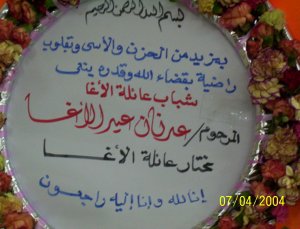 بسم الله الرحمن الرحيم
بمزيد من الحزن والأسى وقلوب
راضية بقضاء الله وقدره ينعى
شباب عائلة الأغا
المرحوم/ عدنان عيد الأغا
مختار عائلة الأغا
إنا لله وإنا إليه راجعون
07/04/2004